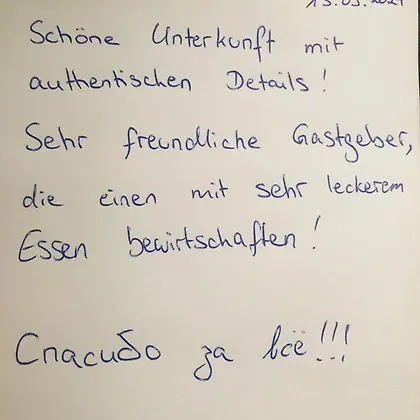 Schöne Unterkunft mit
authentischen Details!
Sehr freundliche Gastgeber,
die einen mit sehr leckerem
Essen bewirtschaften!
Спасибо за всё!!!